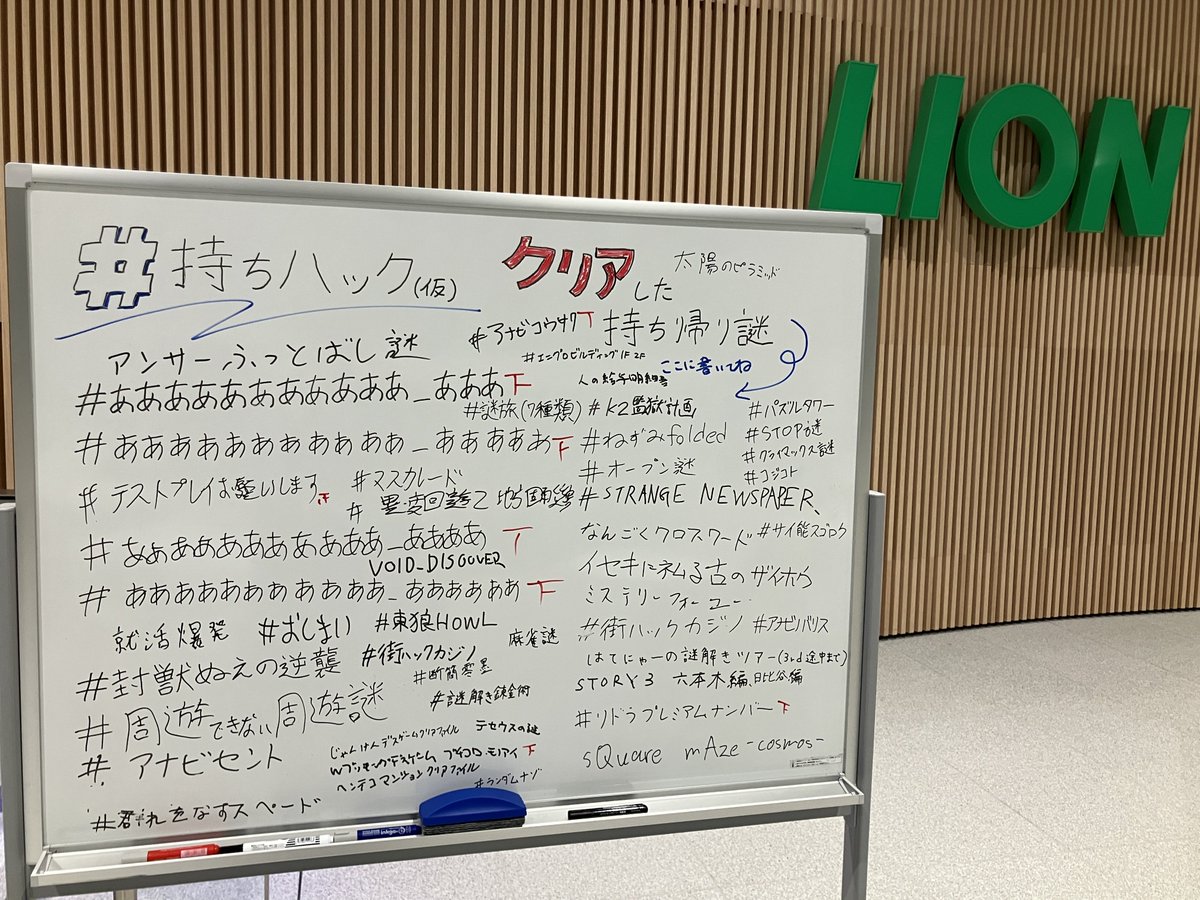 LION
#持ちハック(仮)
クリアした
太陽のピラミッド
持ち帰り謎
ここに書いてね
#アナビコウサク下
#エニグロビルディング1F 2F
アンサーふっとばし謎
人の給与明細書
#あああああああああああ_あああ下
#謎旅(7種類)
#K2監獄計画
#パズルタワー
#STOP謎
#クライマックス謎
#コジコト
#あああああああああああ_あああああ下
#ねずみfolded
#オープン謎
#テストプレイお願いします下
#マスカレード
#STRANGE NEWSPAPER、
#あああああああああああ_ああああ下
VOID_DISCOVER
なんごくクロスワード
#サイ能スゴロク
#あああああああああああ_ああああああ下
イセキにネムる古のザイホウ
ミステリーフォーユー
就活爆発
#おしまい
#東狼HOWL
麻雀謎
#街ハックカジノ
#アナビバリス
#封獣ぬえの逆襲
#街ハックカジノ
#断簡零墨
#謎解き錬金術
はてにゃーの謎解きツアー(3rd途中まで)
STORY3 六本木編、日比谷編
#周遊できない周遊謎
#リドラプレミアムナンバー下
#アナビセント
じゃんけんデスゲームクリアファイル
テセウスの謎
モアイ下
ヘンテコマンションクリアファイル
#ランダムナゾ
sQuare mAze -cosmos-
#群れをなすスペード